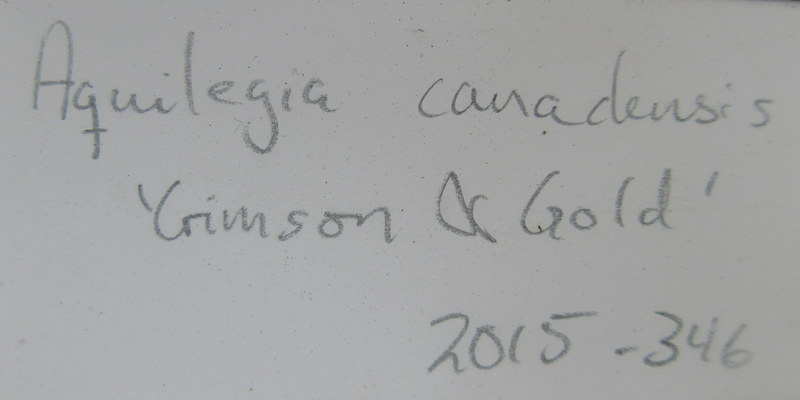 Aquilegia canadensis
'Crimson & Gold'
2015-346